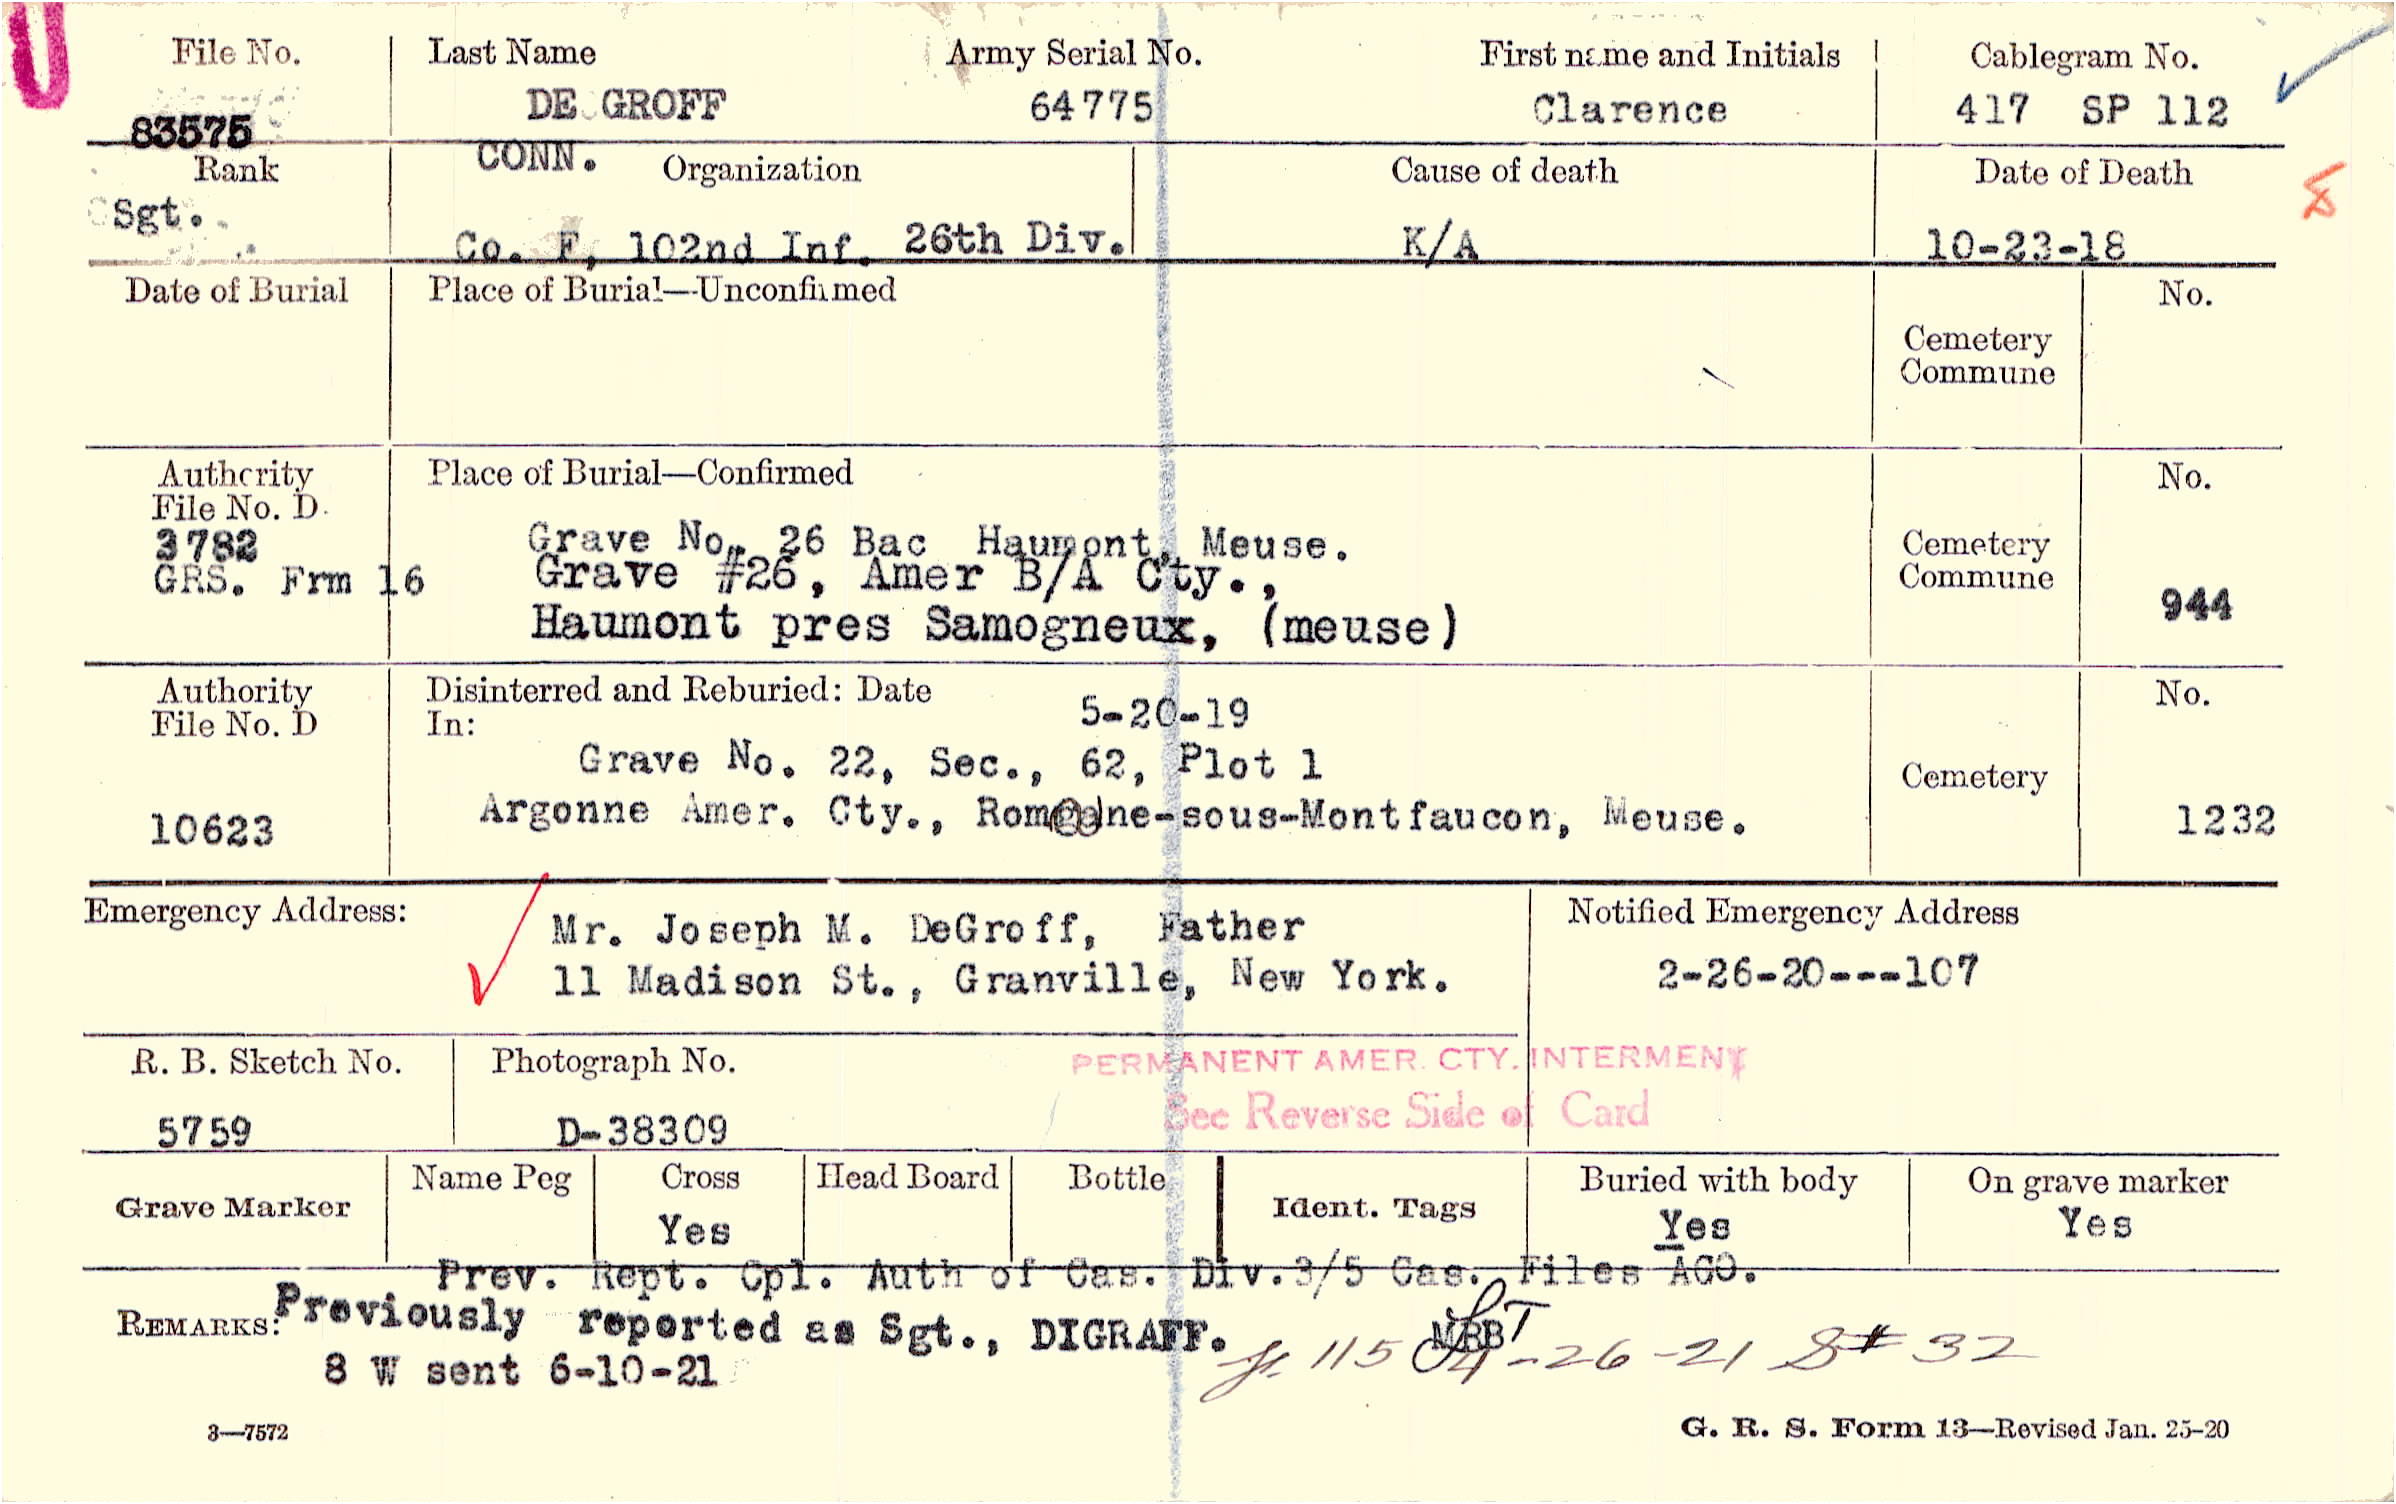 File No. Last Name Army Serial No. First name and Initials Cablegram No.
83575 DE GROFF 64775 Clarence 417 SP 112
Rank CONN. Organization Cause of death Date of Death
Sgt. Co. F, 102nd Inf. 26th Div. K/A 10-23-18
8
Date of Burial Place of Burial—Unconfirmed No.
Cemetery
Commune
Authority Place of Burial—Confirmed No.
File No. D.
3782 Grave No. 26 Bac Haumont, Meuse. Cemetery
GRS. Frm 16 Grave #26, Amer B/A Cty., Commune
Haumont pres Samogneux, (meuse) 944
Authority Disinterred and Reburied: Date 5-20-19 No.
File No. D In:
Grave No. 22, Sec., 62, Plot 1 Cemetery
10623 Argonne Amer. Cty., Romagne-sous-Montfaucon, Meuse. 1232
Emergency Address: Mr. Joseph M. DeGroff, Father Notified Emergency Address
11 Madison St., Granville, New York. 2-26-20---107
R. B. Sketch No. Photograph No. PERMANENT AMER. CTY. INTERMENT
5759 D-38309 See Reverse Side of Card
Grave Marker Name Peg Cross Head Board Bottle Ident. Tags Buried with body On grave marker
Yes Yes Yes
Prev. Rept. Cpl. Auth of Cas. Div. 3/5 Cas. Files AGO.
REMARKS: Previously reported as Sgt., DIGRAFF. MRB
8 W sent 6-10-21 115 4-26-21 S# 32
3—7572 G. R. S. Form 13—Revised Jan. 25-20